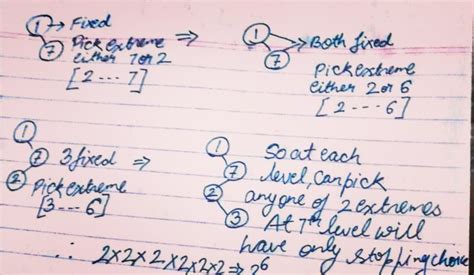 1 → Fixed
7 Pick extreme
either 7 or 2
[2 --- 7]
⇒
1 → Both fixed
7
Pick extreme
either 2 or 6
[2 --- 6]
1
7 3 fixed ⇒
2 Pick extreme
[3 --- 6]
1 So at each
7 level, can pick
2 any one of 2 extremes
3 At 7th level will
have only 1 stopping choice
∴ 2×2×2×2×2×2 ⇒ 2⁶